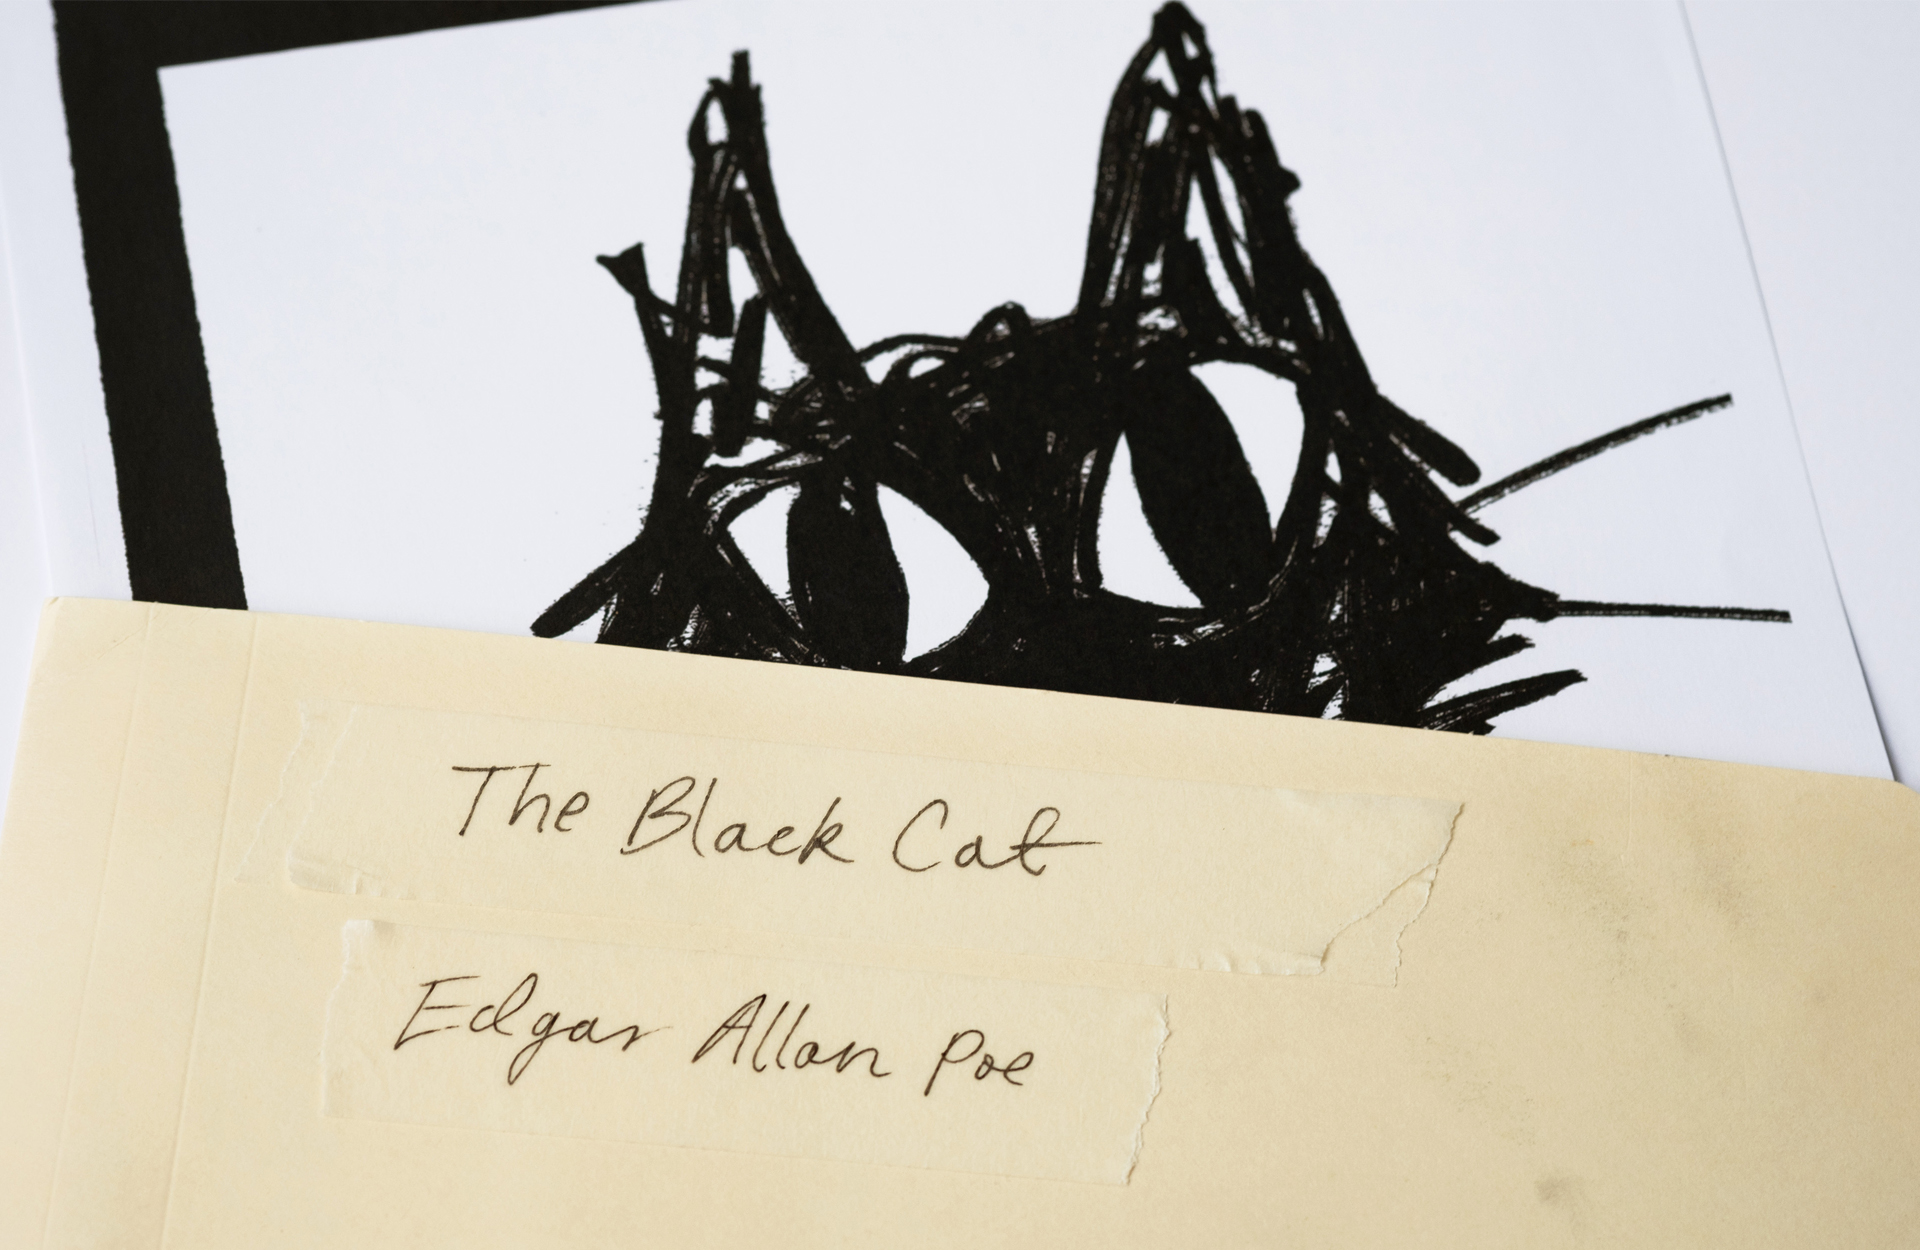 The Black Cat
Edgar Allan Poe